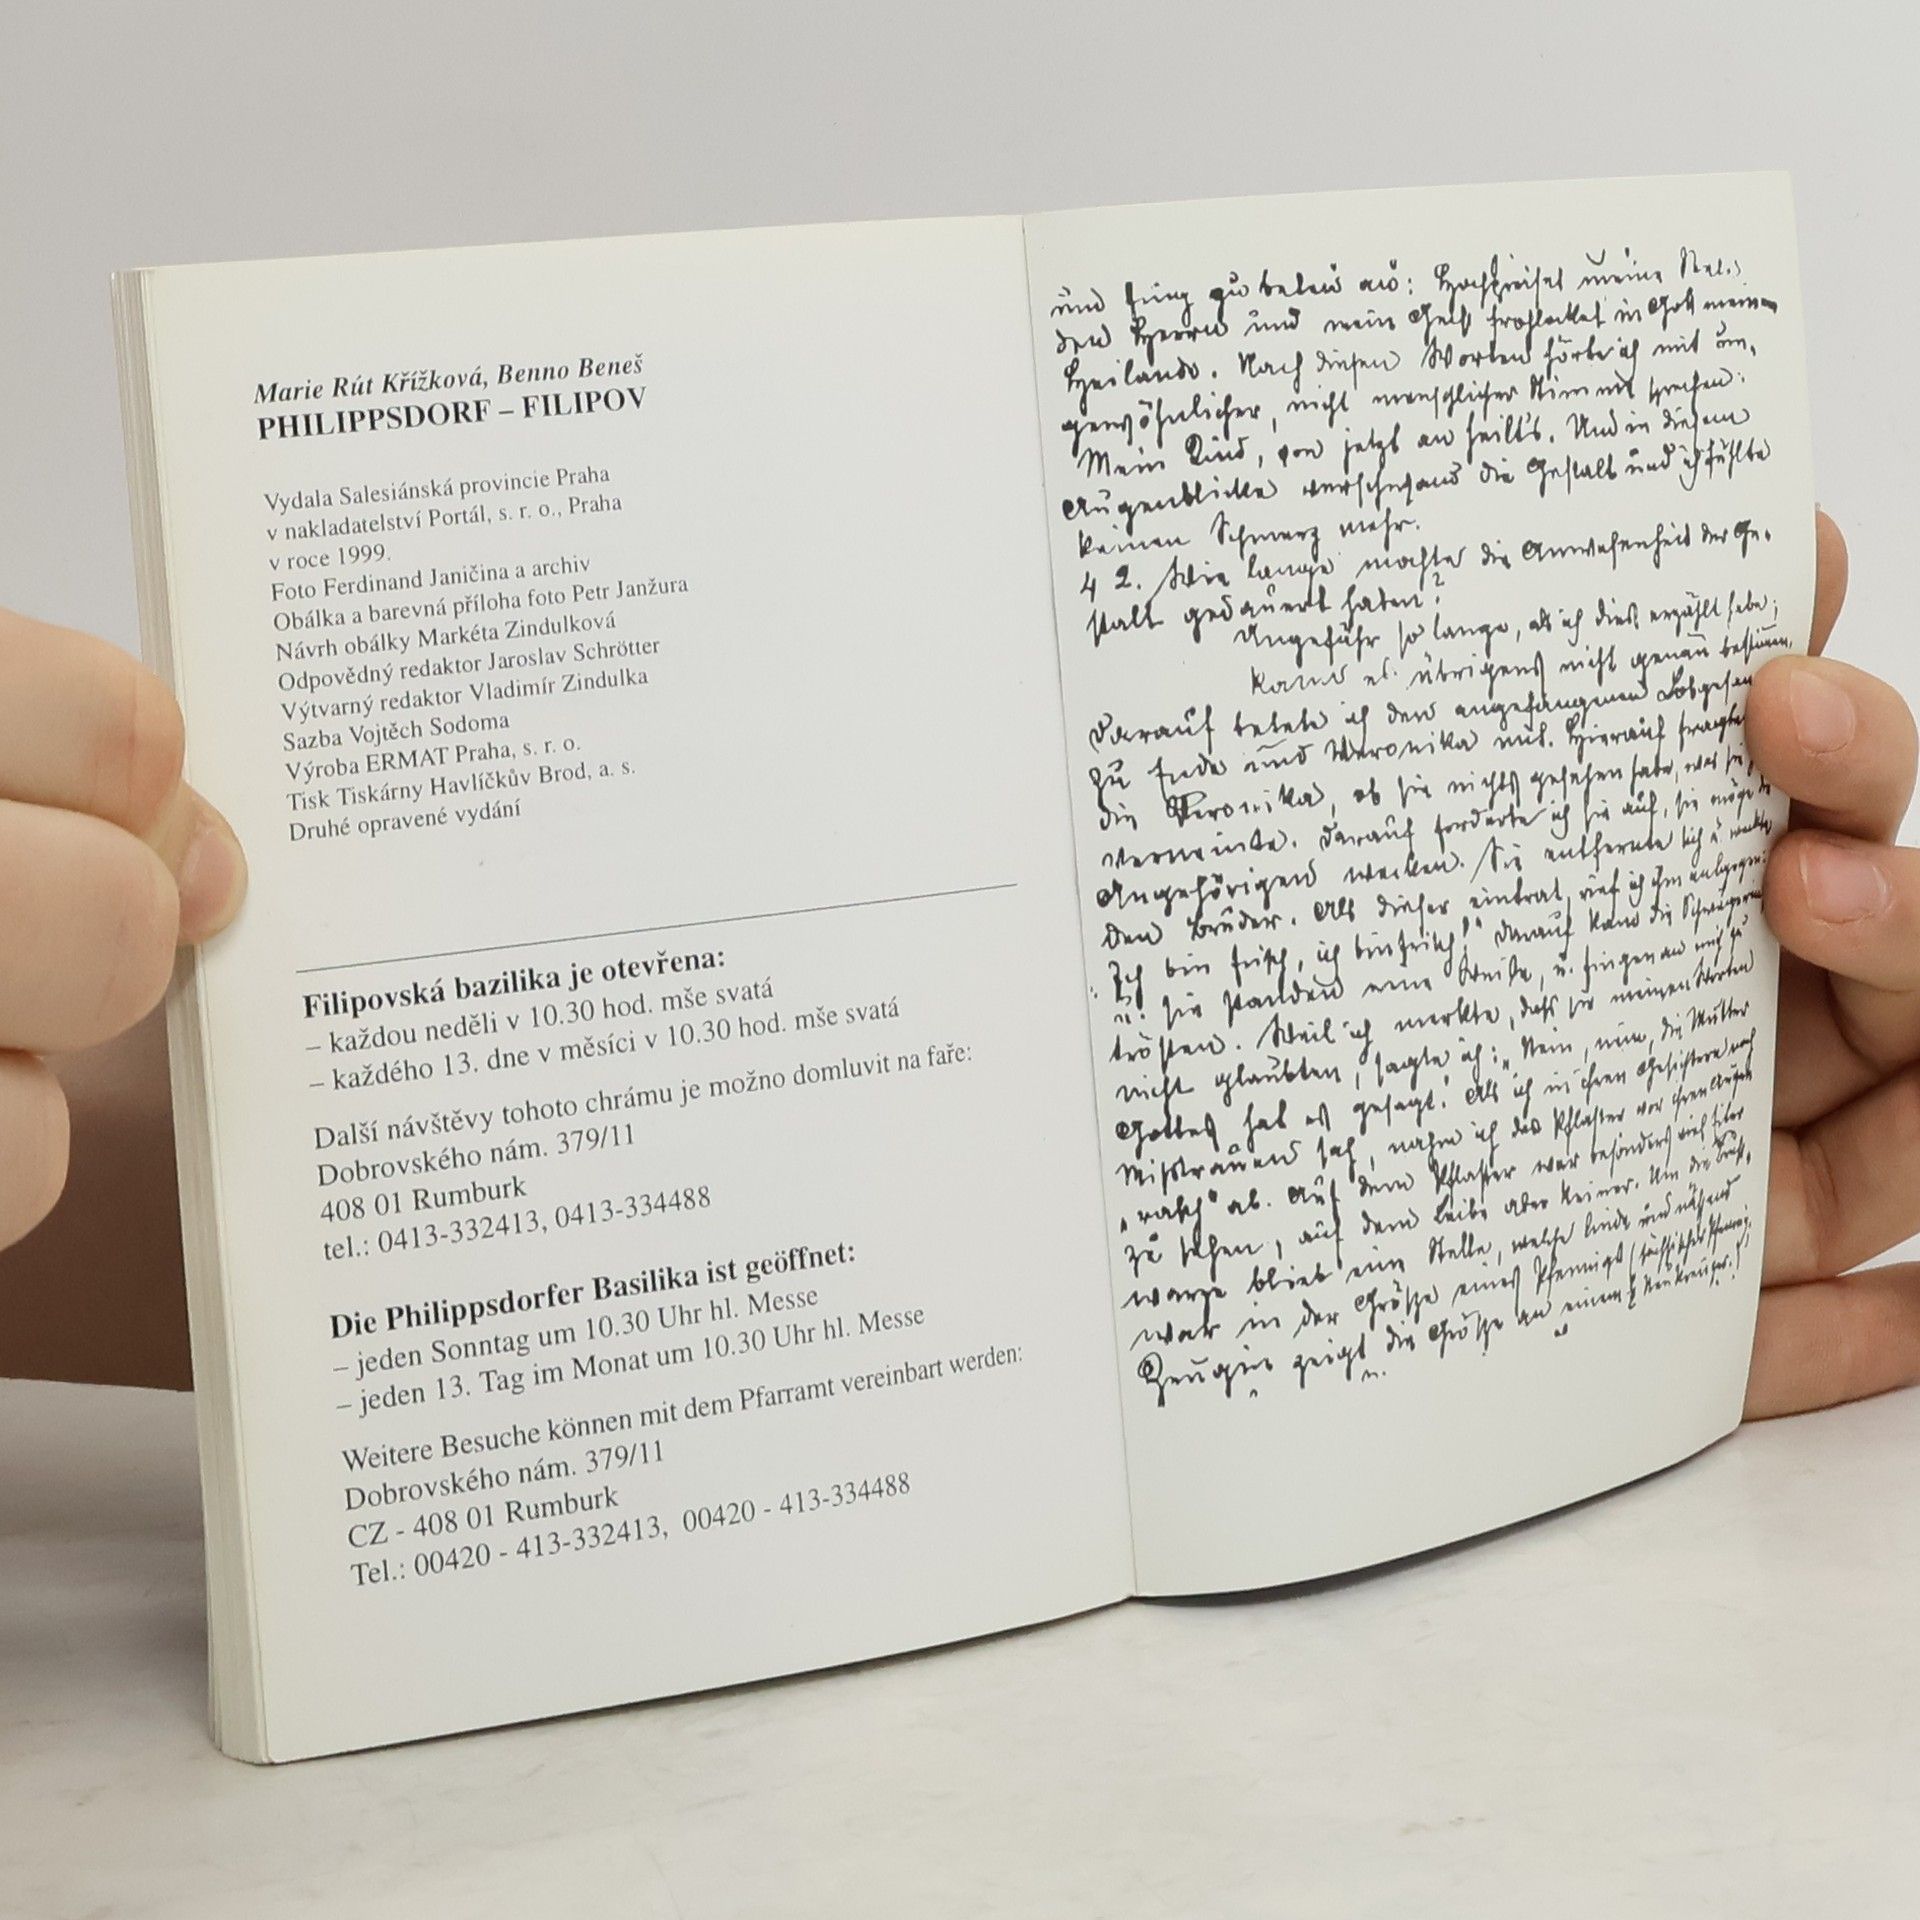 Marie Rút Křížková, Benno Beneš
PHILIPPSDORF – FILIPOV
Vydala Salesiánská provincie Praha
v nakladatelství Portál, s. r. o., Praha
v roce 1999.
Foto Ferdinand Janičina a archiv
Obálka a barevná příloha foto Petr Janžura
Návrh obálky Markéta Zindulková
Odpovědný redaktor Jaroslav Schrötter
Výtvarný redaktor Vladimír Zindulka
Sazba Vojtěch Sodoma
Výroba ERMAT Praha, s. r. o.
Tisk Tiskárny Havlíčkův Brod, a. s.
Druhé opravené vydání
Filipovská bazilika je otevřena:
– každou neděli v 10.30 hod. mše svatá
– každého 13. dne v měsíci v 10.30 hod. mše svatá
Další návštěvy tohoto chrámu je možno domluvit na faře:
Dobrovského nám. 379/11
408 01 Rumburk
tel.: 0413-332413, 0413-334488
Die Philippsdorfer Basilika ist geöffnet:
– jeden Sonntag um 10.30 Uhr hl. Messe
– jeden 13. Tag im Monat um 10.30 Uhr hl. Messe
Weitere Besuche können mit dem Pfarramt vereinbart werden:
Dobrovského nám. 379/11
CZ - 408 01 Rumburk
Tel.: 00420 - 413-332413, 00420 - 413-334488
und fing zu beten an: Hochpreiset meine
den Herrn und mein Geist frohlocket in Gott meinem
Heilande. Nach diesen Worten hörte ich mit un,
gewöhnlicher, nicht menschlicher Stimme sprechen:
Mein Kind, von jetzt an heilt's. Und in diesem
Augenblicke verschwand die Gestalt und ich fühlte
keinen Schmerz mehr.
42. Wie lange mochte die Anwesenheit der Ge,
stalt gedauert haben?
Ungefähr so lange, als ich dies erzählt habe;
kann es übrigens nicht genau bestimm,
Darauf betete ich den angefangenen Lobgesan
zu Ende und Veronika mit. Hierauf fragte
die Veronika, ob sie nichts gesehen habe, was sie
verneinte. Darauf forderte ich sie auf, sie möge die
Angehörigen wecken. Sie entfernte sich u. weckte
den Bruder. Als dieser eintrat, rief ich ihm entgegen:
"Ich bin frisch, ich bin frisch!" Darauf kam die Schwägerin
u. sie standen eine Weile, u. fingen an mich zu
trösten. Weil ich merkte, daß sie meinen Worten
nicht glaubten, sagte ich: "Nein, nein, die Mutter
Gottes hat es gesagt." Als ich in ihren Gesichtern noch
Mißtrauen sah, nahm ich das Pflaster vor ihren Augen
"rasch" ab. Auf dem Pflaster war besonders viel Eiter
zu sehen, auf dem Leibe aber keiner. Um die Brust,
warze blieb eine Stelle, welche linde und nässend
war in der Größe eines Pfennigs (sächsischer Pfennig,
Zeugin zeigt die Größe an einem Neukreuzer.)